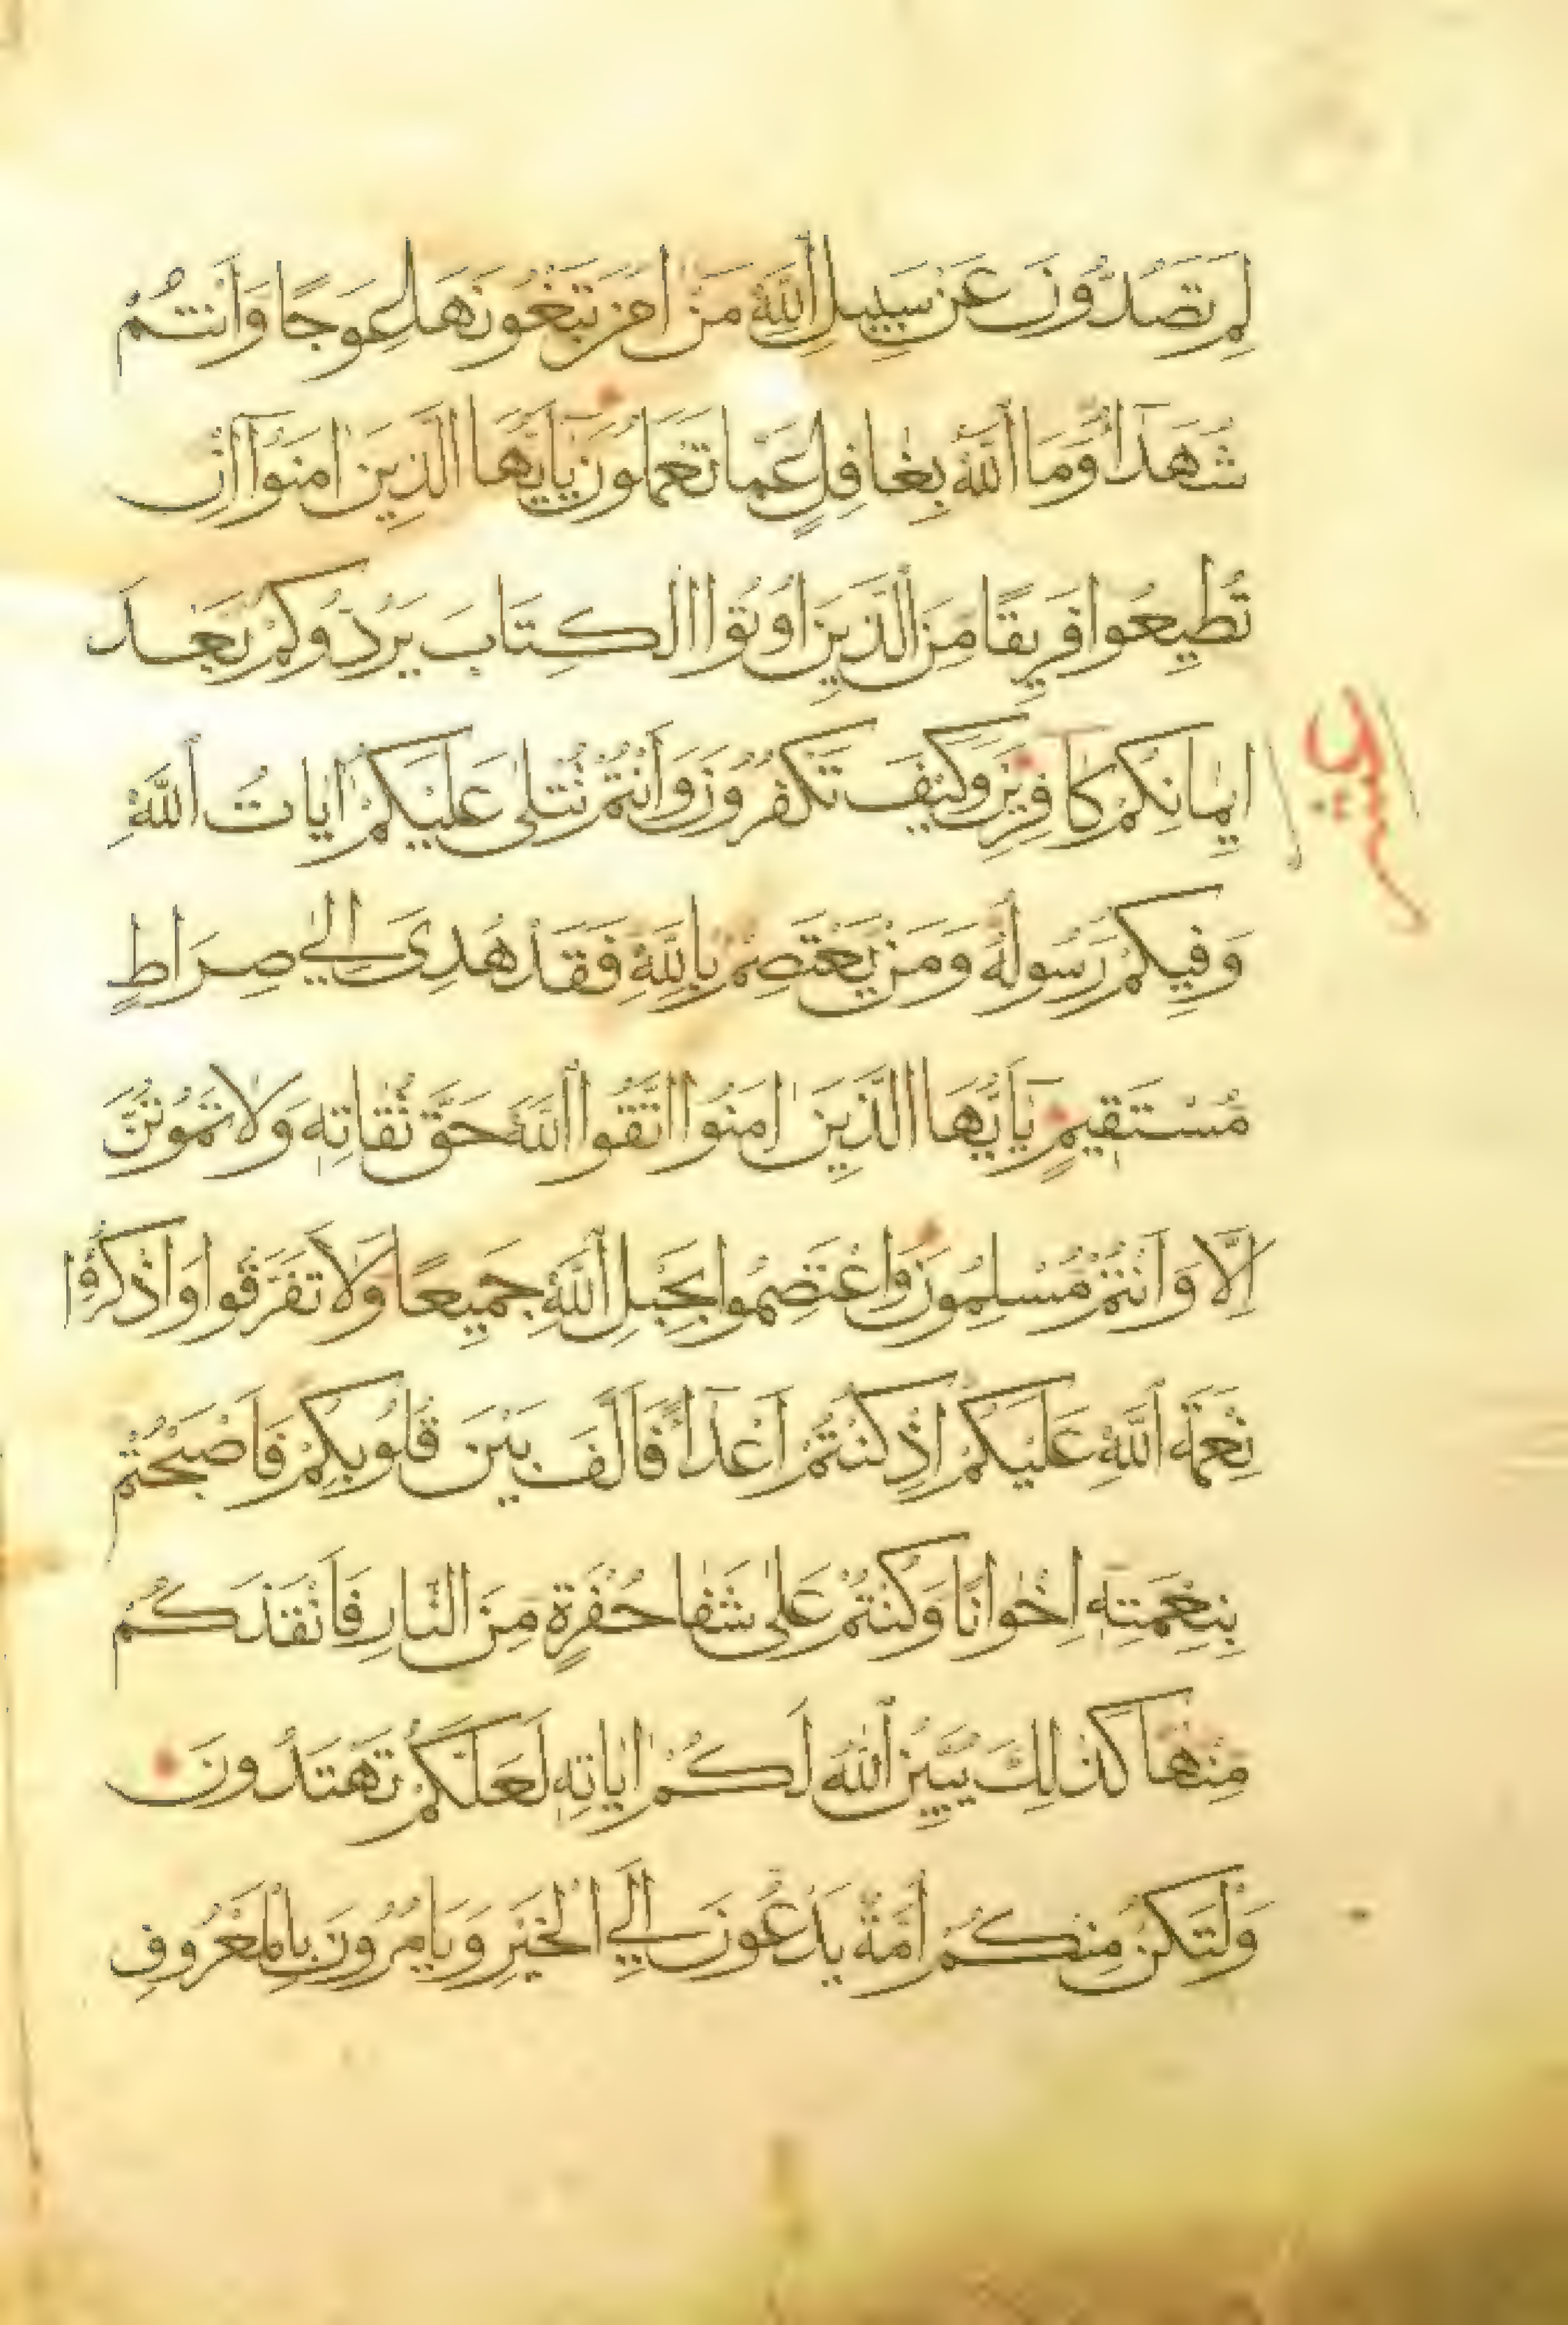 لِمَ تَصُدُّونَ عَنْ سَبِيلِ اللّٰهِ مَنْ اٰمَنَ تَبْغُونَهَا عِوَجًا وَاَنْتُمْ
شُهَدَاءُ وَمَا اللّٰهُ بِغَافِلٍ عَمَّا تَعْمَلُونَ يَا اَيُّهَا الَّذِينَ اٰمَنُوا اِنْ
تُطِيعُوا فَرِيقًا مِنَ الَّذِينَ اُوتُوا الْكِتَابَ يَرُدُّوكُمْ بَعْدَ
اِيمَانِكُمْ كَافِرِينَ وَكَيْفَ تَكْفُرُونَ وَاَنْتُمْ تُتْلٰى عَلَيْكُمْ اٰيَاتُ اللّٰهِ
وَفِيكُمْ رَسُولُهُ وَمَنْ يَعْتَصِمْ بِاللّٰهِ فَقَدْ هُدِيَ اِلٰي صِرَاطٍ
مُسْتَقِيمٍ يَا اَيُّهَا الَّذِينَ اٰمَنُوا اتَّقُوا اللّٰهَ حَقَّ تُقَاتِهِ وَلَا تَمُوتُنَّ
اِلَّا وَاَنْتُمْ مُسْلِمُونَ وَاعْتَصِمُوا بِحَبْلِ اللّٰهِ جَمِيعًا وَلَا تَفَرَّقُوا وَاذْكُرُوا
نِعْمَةَ اللّٰهِ عَلَيْكُمْ اِذْ كُنْتُمْ اَعْدَاءً فَاَلَّفَ بَيْنَ قُلُوبِكُمْ فَاَصْبَحْتُمْ
بِنِعْمَتِهِ اِخْوَانًا وَكُنْتُمْ عَلٰى شَفَا حُفْرَةٍ مِنَ النَّارِ فَاَنْقَذَكُمْ
مِنْهَا كَذٰلِكَ يُبَيِّنُ اللّٰهُ لَكُمْ اٰيَاتِهِ لَعَلَّكُمْ تَهْتَدُونَ
وَلْتَكُنْ مِنْكُمْ اُمَّةٌ يَدْعُونَ اِلَي الْخَيْرِ وَيَامُرُونَ بِالْمَعْرُوفِ